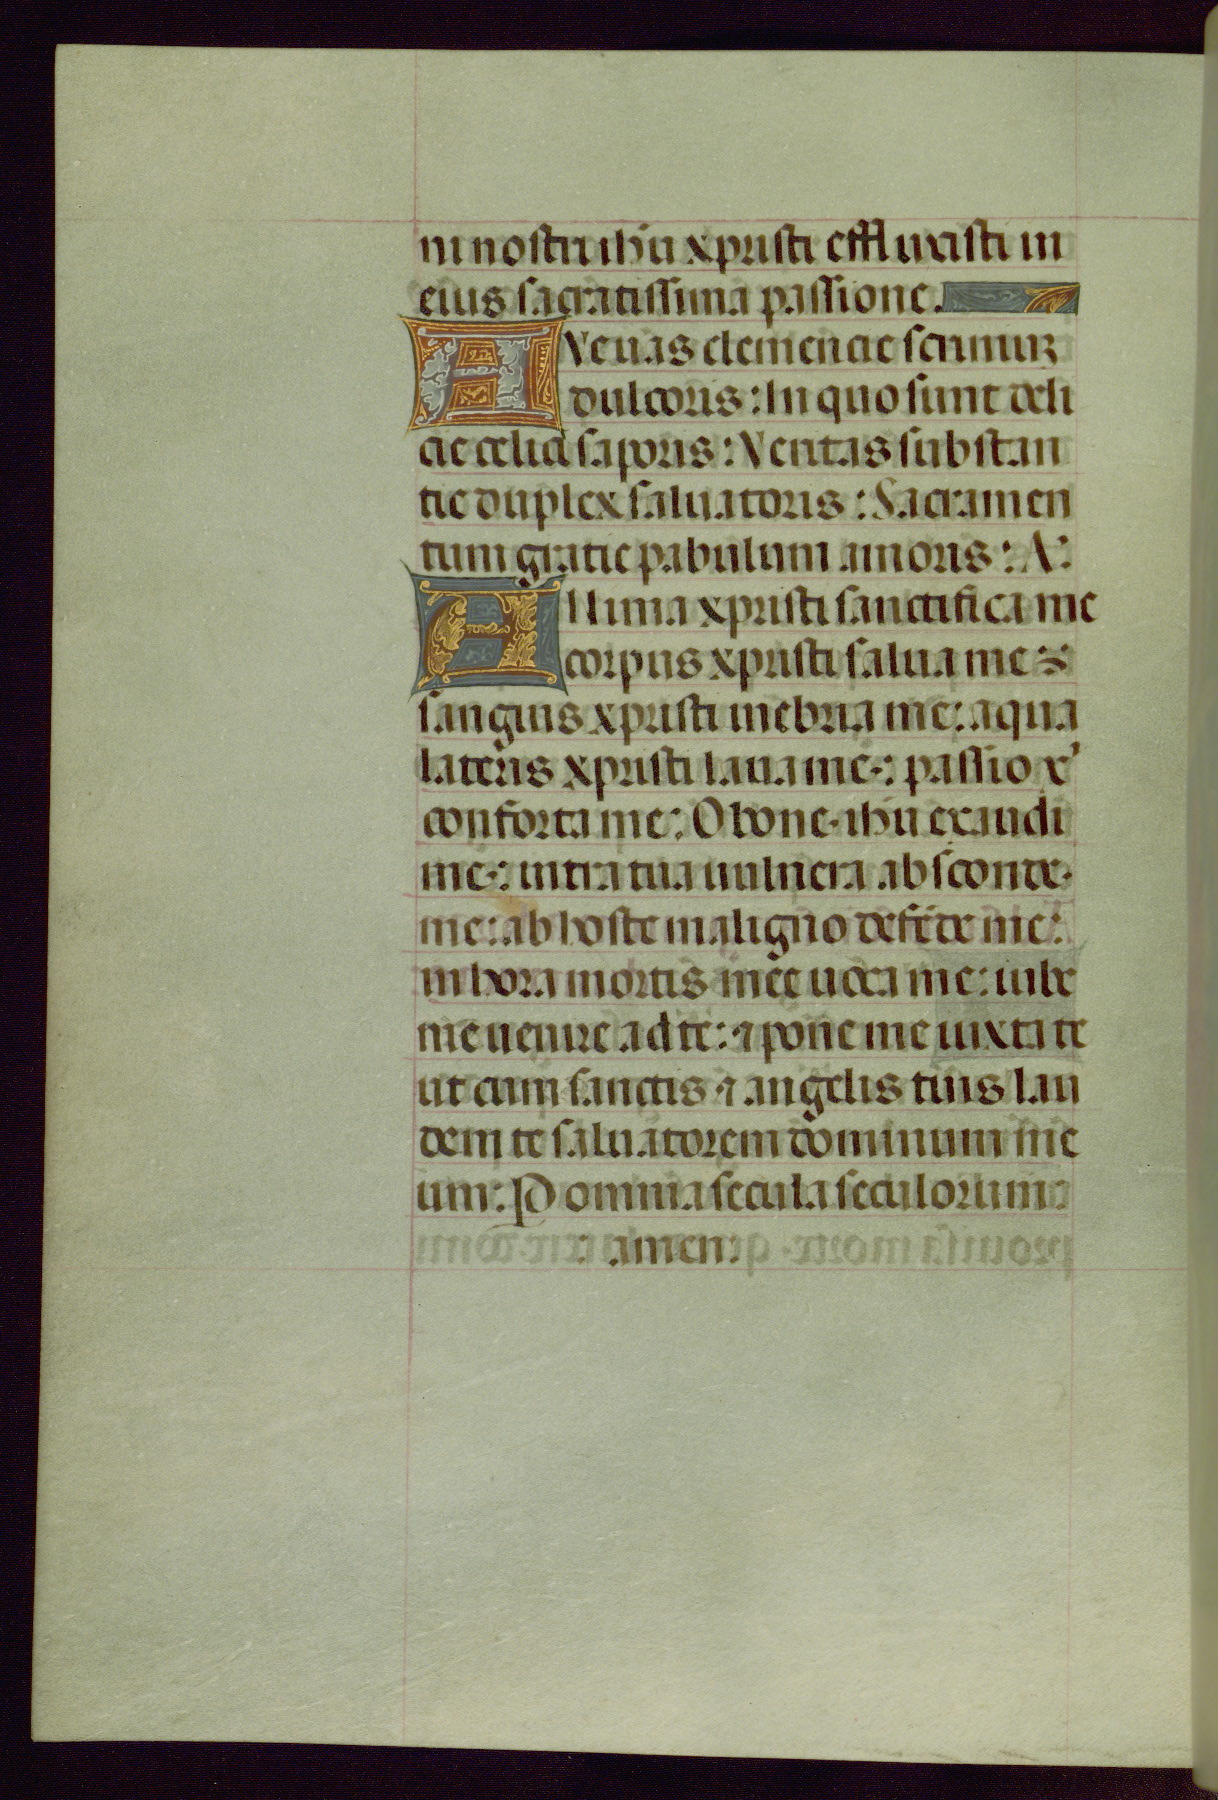 ni nostri ihu xpristi effluxisti in
eius sacratissima passione.
AVe uas clemencie scriniuz
dulcoris: In quo sunt deli
cie celici saporis: Veritas substan
tie duplex saluatoris: Sacramen
tum gratie pabulum amoris: A:
ANima xpristi sanctifica me
corpus xpristi salua me:
sanguis xpristi inebria me: aqua
lateris xpristi laua me: passio x'
conforta me: O bone ihu exaudi
me: intra tua uulnera absconde
me: ab hoste maligno defēde me:
in hora mortis mee uoca me: iube
me uenire ad te: ⁊ pone me iuxta te
ut cum sanctis ⁊ angelis tuis lau
dem te saluatorem dominum me
um: P omnia secula seculorum:
: amen: